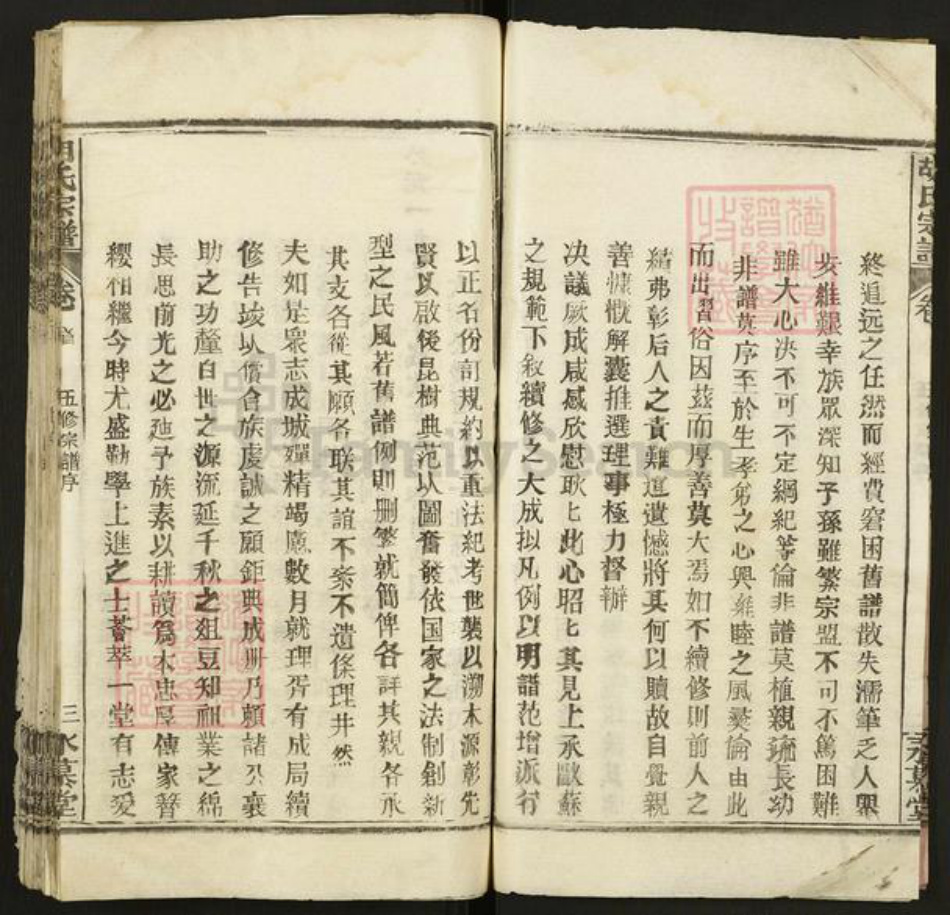 胡氏宗譜
卷
永慕堂
終追远之任然而經費窘困舊譜散失濡筆乏人興
亥維艱幸族眾深知子孫雖繁宗盟不可不篤困難
雖大心决不可不定綱紀等倫非譜莫植親疏長幼
非譜莫序至於生孝弟之心興雍睦之風彛倫由此
而出習俗因茲而厚善莫大焉如不續修則前人之
績弗彰后人之責難逭遺憾將其何以贖故自覺親
善慷慨解囊推選理事極力督辦
决議厥成咸感欣慰耿匕此心昭匕其見上承歐蘇
之規範下敘續修之大成拟凡例以明譜范增派行
以正名份訂規約以重法紀考世襲以溯木源彰先
賢以啟後昆樹典范以圖奮發依国家之法制創新
型之民風若舊譜例則删繁就簡俾各詳其親各承
其支各從其願各联其誼不紊不遺條理井然
夫如是衆志成城殫精竭慮數月就理胥有成局續
修告竣以償合族虔誠之願鉅典成册乃賴諸公襄
助之功釐百世之源流延千秋之俎豆知祖業之綿
長思前光之必廸予族素以耕讀爲本忠厚傳家簪
纓相繼今時尤盛勤學上進之士薈萃一堂有志爱
胡氏宗譜
卷
五修宗譜序
三
永慕堂
FamilySearch